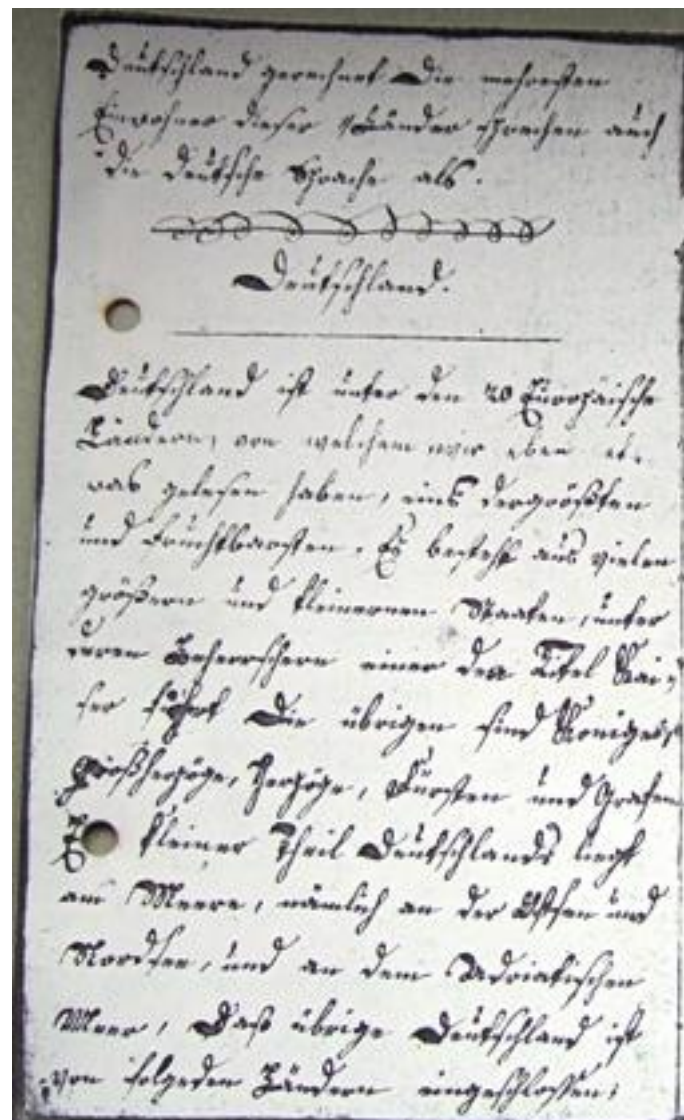 Deutschland gerechnet Die mehresten
Einwohner dieser Länder sprechen auch
die Deutsche Sprache als.
Deutschland.
Deutschland ist unter den 20 Europäische
Ländern, von welchem wir eben et-
was gelesen haben, eins dergrößten
und Fruchtbarsten. Es besteht aus vielen
größern und kleinernen Staaten, unter
deren Beherrschern einer den Titel Kai-
ser führt Die übrigen sind Koniges,
Großherzöge, Herzöge, Fürsten und Grafen
kleiner Theil Deutschlands liegt
am Meere, nämlich an der Ostsee und
Nordsee, und an dem Adriatischen
Meer, Daß übrige Deutschland ist
von folgeden Ländern eingeschlossen: